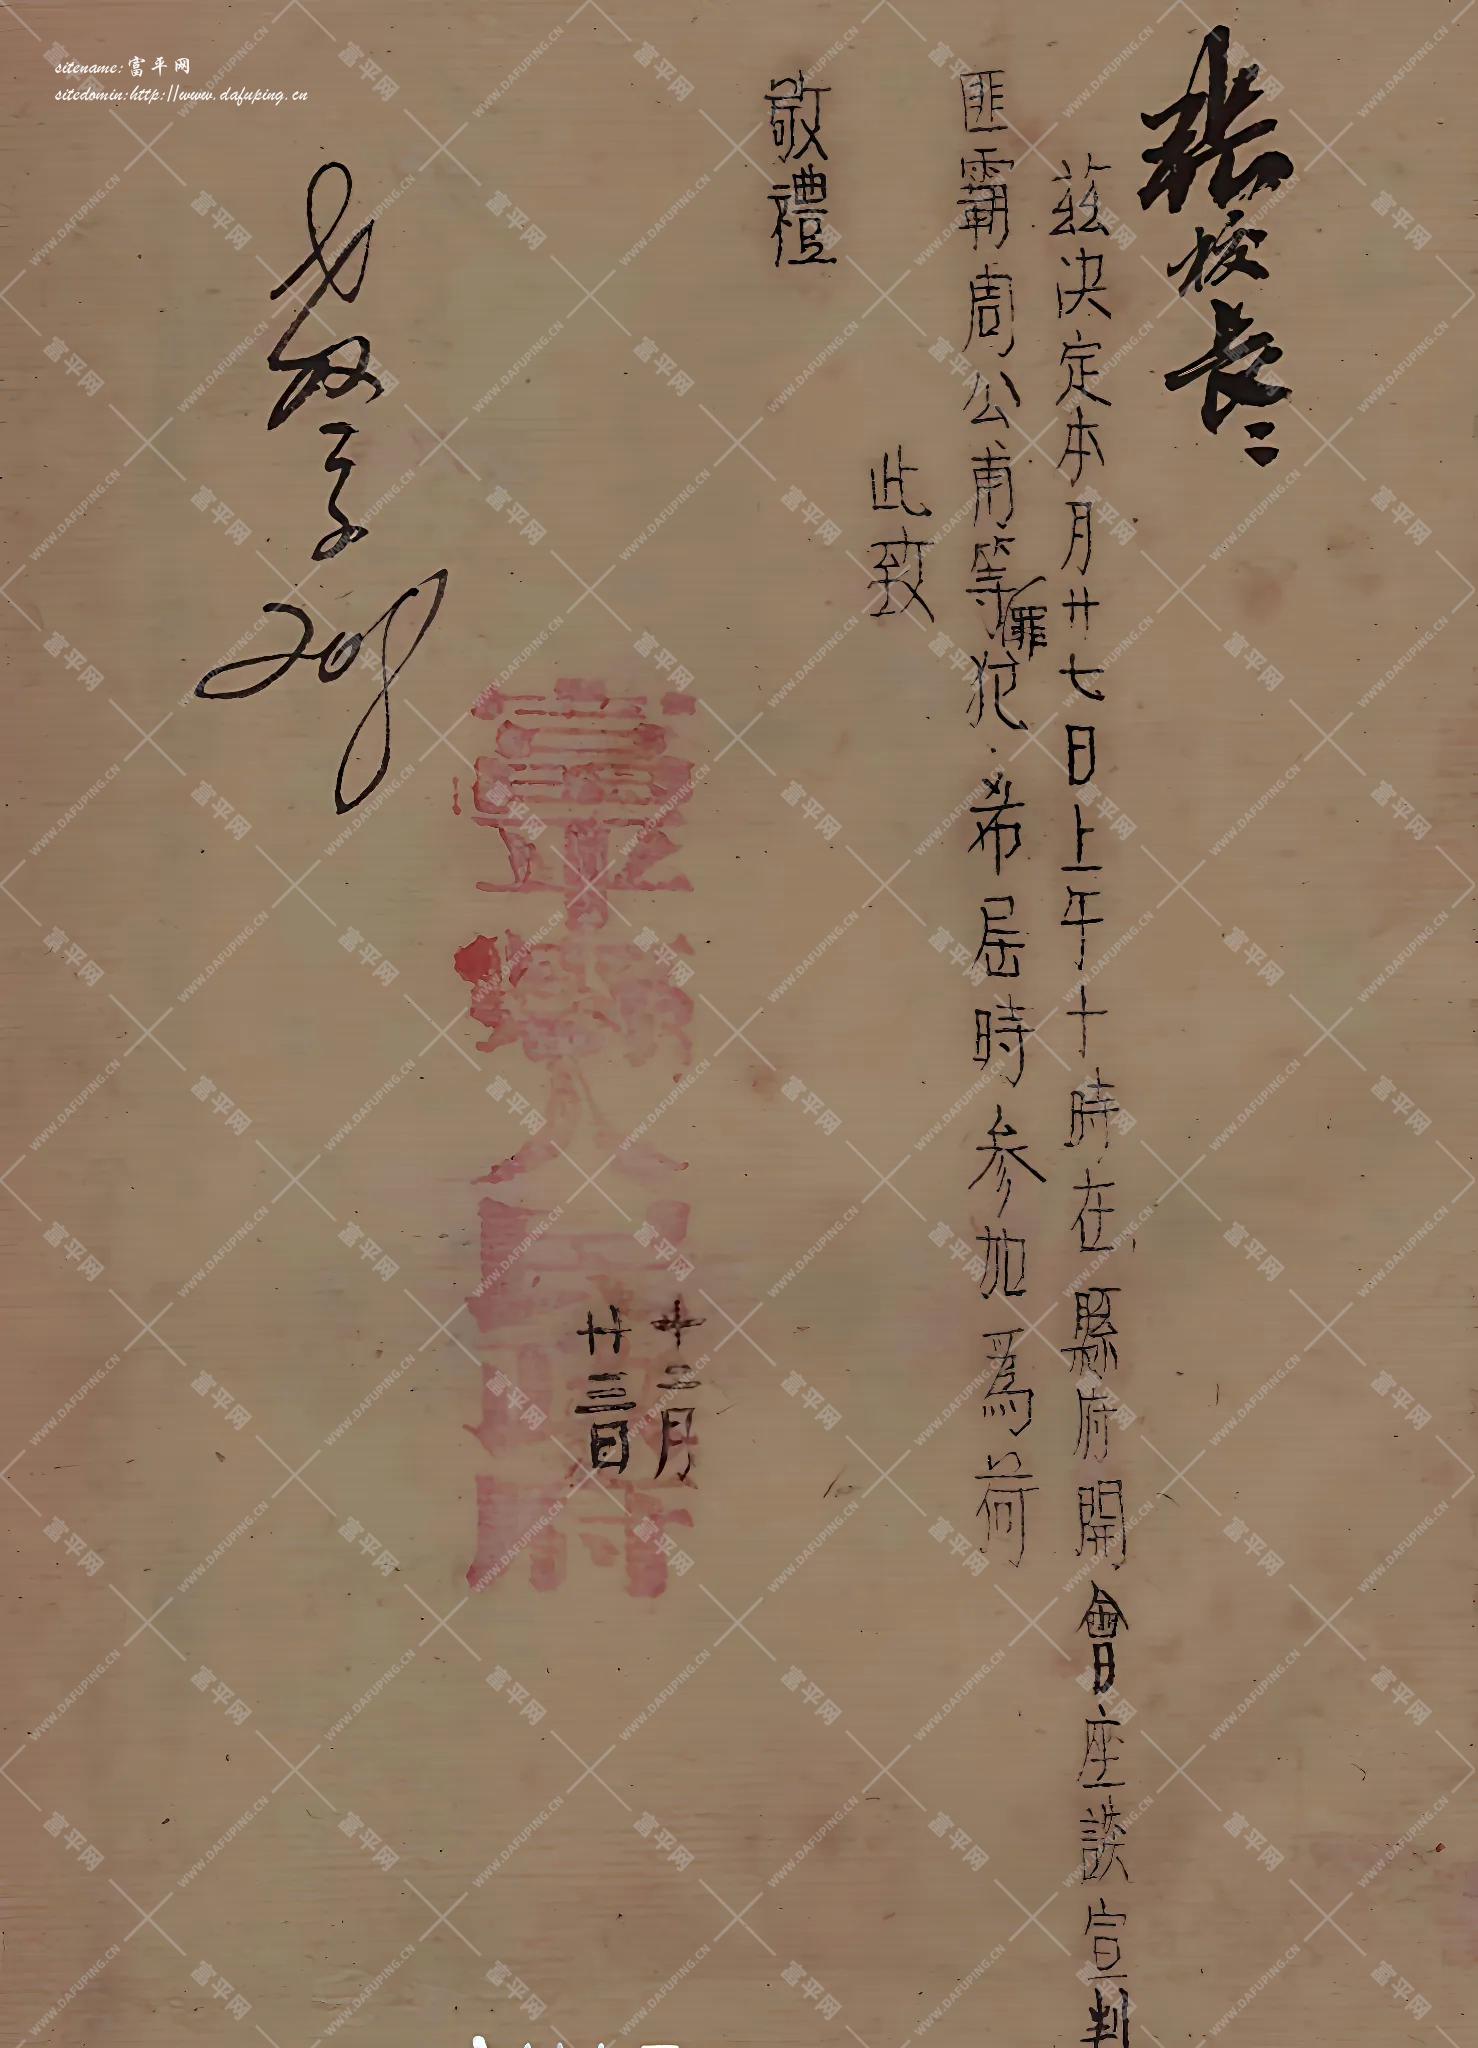 sitename:富平网
sitedomin:http://www.dafuping.cn
張校長:
茲決定本月廿七日上午十時在縣府開會座談宣判
匪霸周公甫等罪犯.希屆時參加為荷
此致
敬禮
縣人民政府
十二月
廿三日
富平网
WWW.DAFUPING.CN